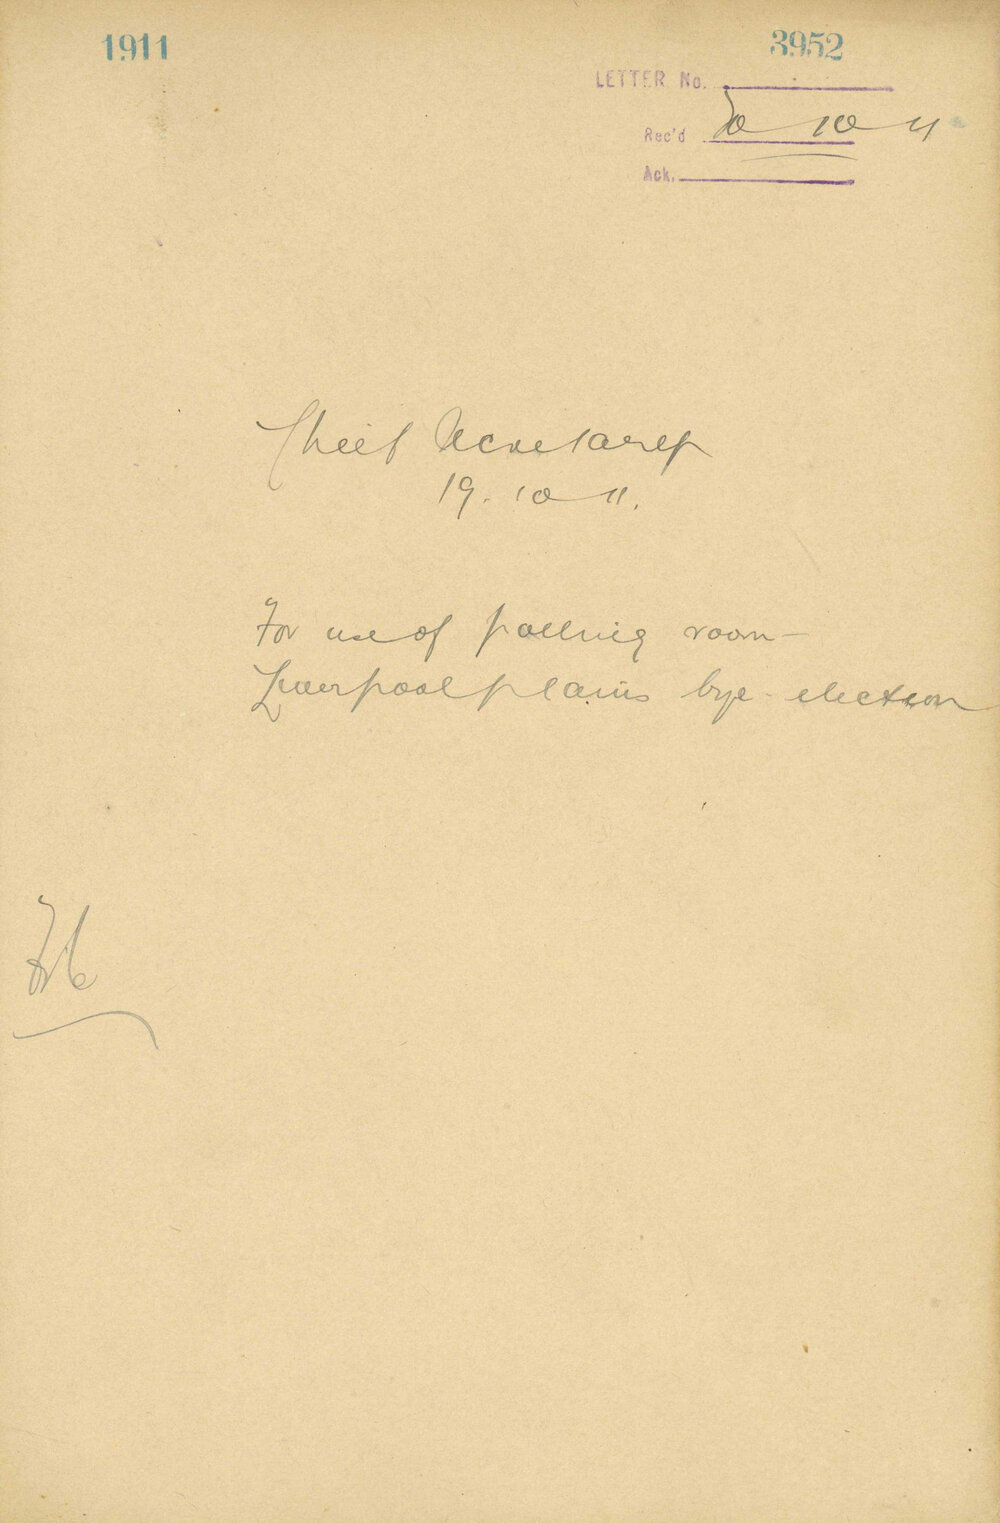 1911
3952
LETTER No.
Rec'd 20 10 11
Ack.
Chief Secretary
19. 10 11.
For use of polling room—
Liverpool plains bye-election